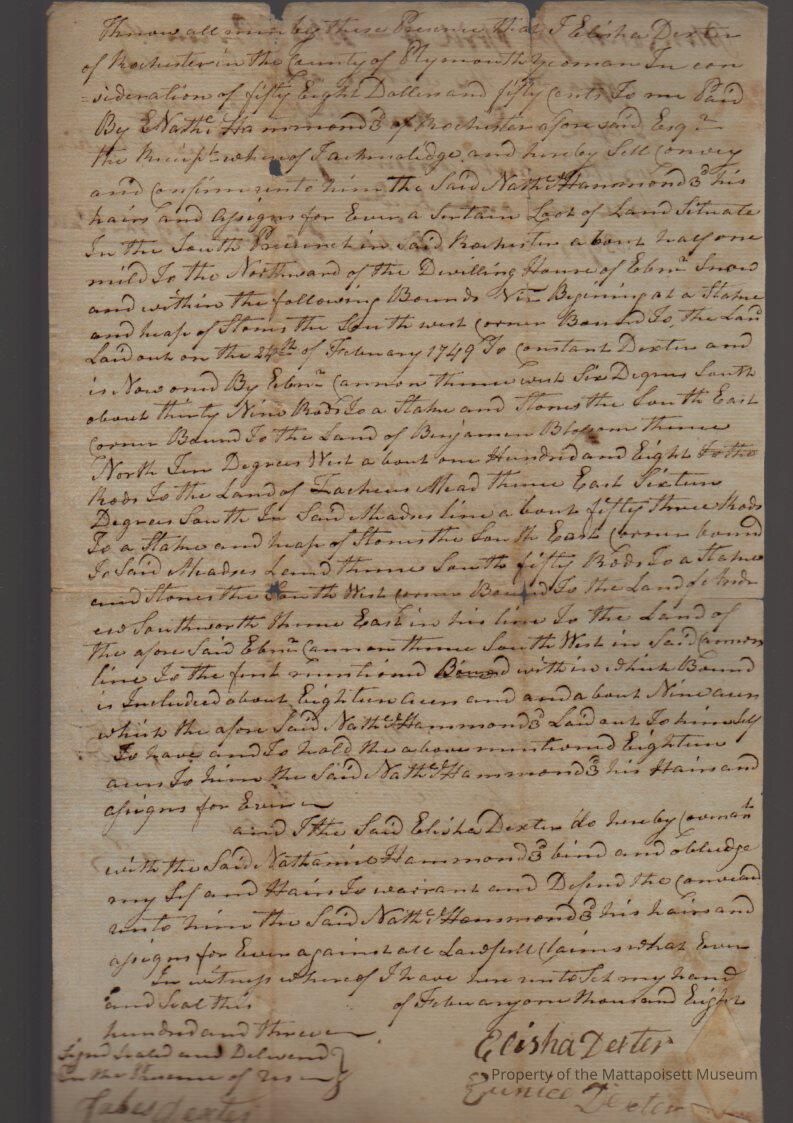 Know all men by these Presence that I Elisha Dexter
of Rochester in the County of Plymouth yeoman In con
=sideration of fifty Eight Dollers and fifty Cents To me Paid
By Nathl Hammond 3d of Rochester afore said Esqr
the Receipt where of I acknowlidge and hereby Sell Convey
and Confirm unto him the Said Nathl Hammond 3d his
hairs and assigns for Ever a Sertain Loot of Land Situate
In the South Precinct in said Rochester about half one
mild To the Northward of the Dwilling House of Ebnr Snow
and within the following Bounds Viz Begining at a Stake
and heap of Stones the South west Corner Bound To the Land
Laid out on the 24th of February 1749 To Constant Dexter and
is Now owned By Ebnr Cannon thence west Six Degrees South
about thirty Nine Rods To a Stake and Stones the South East
Corner Bound To the Land of Benjamin Blossom thence
North Ten Degrees West about one Hundred and Eight
Rods To the Land of Zacheus Mead thence East Sixteen
Degrees South In Said Meads line about fifty three Rods
To a Stake and heap of Stones the South East Corner bound
To Said Meads Land thence South fifty Rods To a Stake
and Stones the South West Corner Bound To the Land of
Southworth thence East in his line To the Land of
the afore Said Ebnr Cannon thence South West in Said Cannon
line To the first mentioned Bound within which Bound
is Included about Eighteen acres and and about Nine acres
which the afore Said Nathl Hammond 3d Laid out To him Self
To have and To hold the above mentioned Eighteen
acres To him the Said Nathl Hammond 3d his Hairs and
assigns for Ever
and I the Said Elisha Dexter do hereby Covenant
with the Said Nathaniel Hammond 3d bind and obledge
my Self and Hairs To warrant and Defend the
unto him the Said Nathl Hammond 3d his hairs and
assigns for Ever against all Lawfull Claims what Ever
In witness where of I have here unto Set my hand
and Seal this of Februaey one thousand Eight
hundred and three
Signd Sealed and Deliverd
In the Presence of us
Elisha Dexter
Eunice Dexter
Dexter
Property of the Mattapoisett Museum